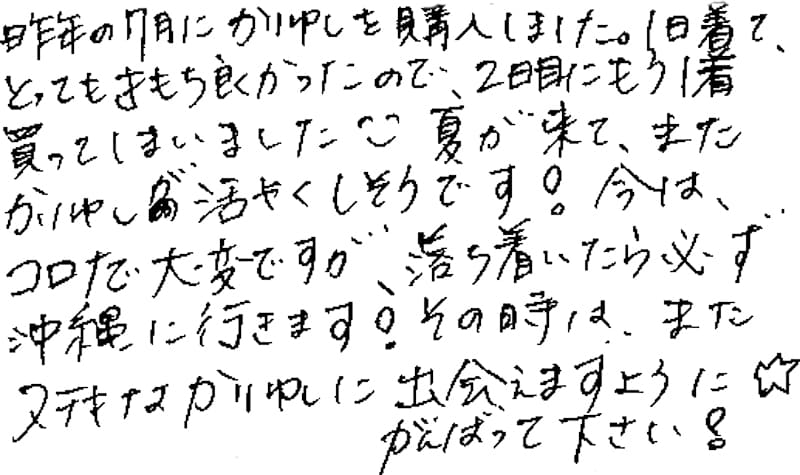 昨年の7月にかりゆしを購入しました。1日着て、
とってもきもち良くかったので、2日目にもう1着
買ってしまいました 夏が来て、また
かりゆしが活やくしそうです！今は、
コロナで大変ですが、落ち着いたら必ず
沖縄に行きます！その時は、また
ステキなかりゆしに出会えますように☆
がんばって下さい！